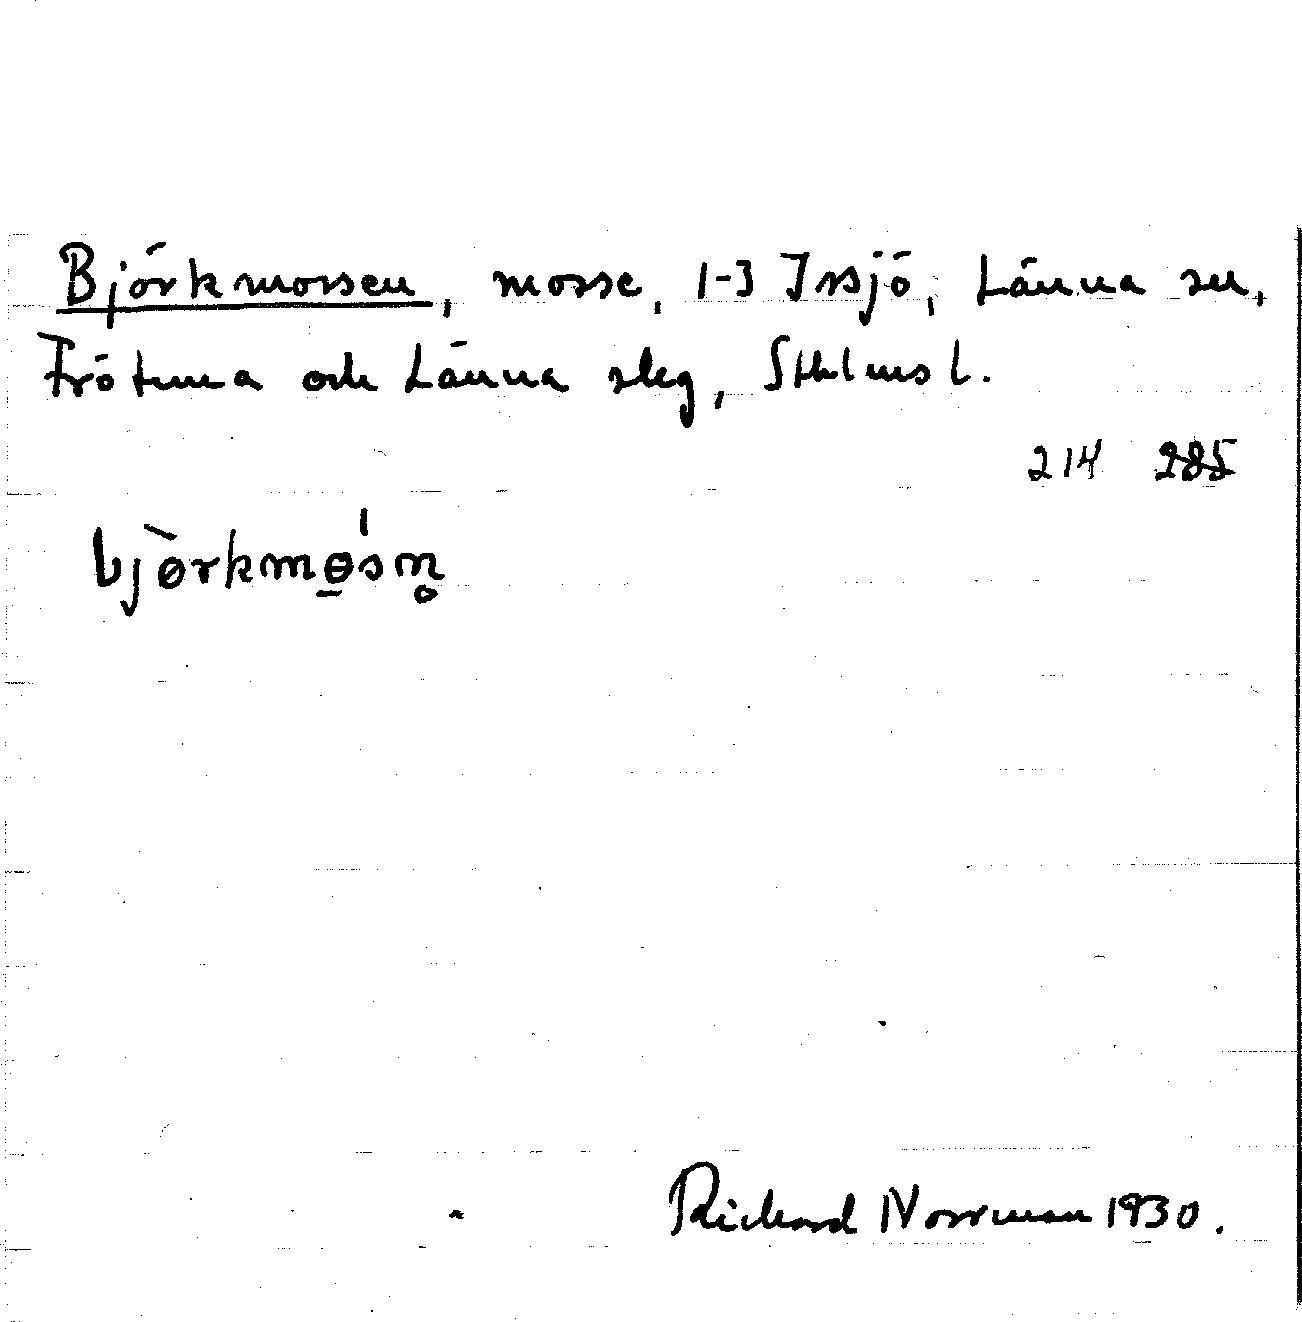 Björkmossen, mosse, 1-3 Irsjö, Länna sn,
Frötuna och Länna skg, Sthlms l.
214 285
bjòrkmɵ̠́sn̥
Richard Norrman 1930.